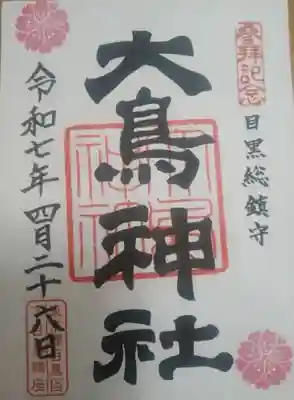 参拝記念
目黒総鎮守
大鳥神社
令和七年四月二十六日